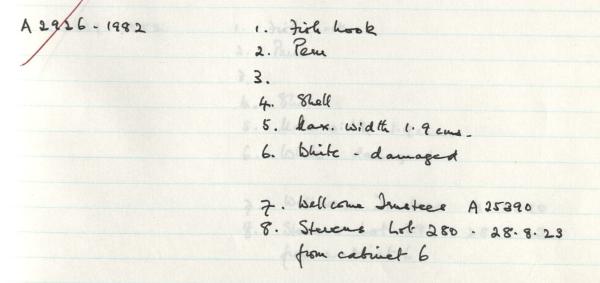 A 2926 - 1982 1. Fish hook
2. Peru
3.
4. Shell
5. Max. width 1.9 cms.
6. White - damaged
7. Wellcome Trustees A 25390
8. Stevens Lot 280 - 28.8.23
from cabinet 6